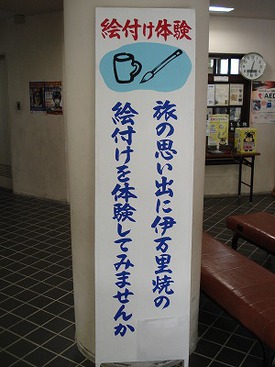 絵付け体験
旅の思い出に伊万里焼の
絵付けを体験してみませんか
AED